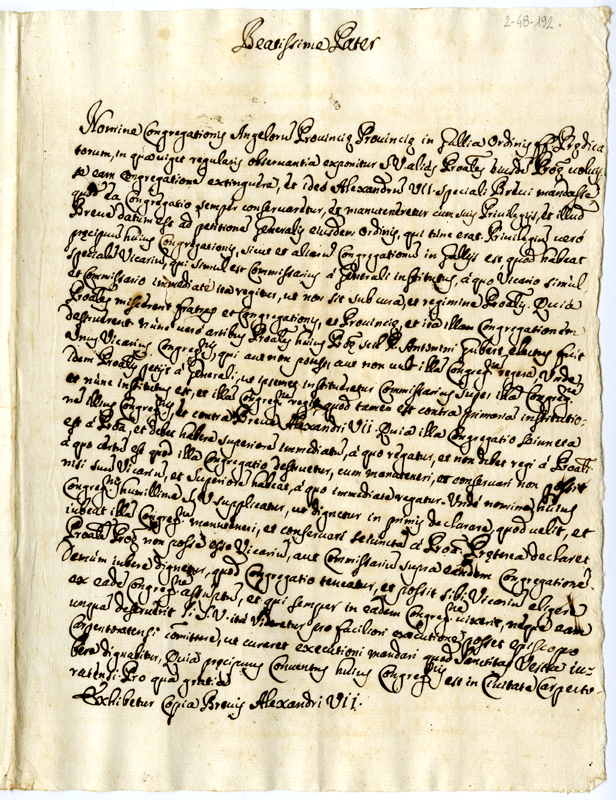 2-48-192.
Beatissime Pater
Nomine Congregationis Angelorũ Provinciæ Provinciæ in Gallia Ordinis Prædica
torum, in qua viget regularis observantia exponitur S.V. alias Proãlis eiusdẽ Proæ voluis
se eam Congregatione extinguere, et ideo Alexandrũ VII speciali Brevi mandasse
quod ea Congregatio semper conservaretur, et manuteneretur cum suis Privilegijs, et illud
Breve datum est ad petitionẽ Generalis eiusdem Ordinis, qui tunc erat. Privilegiũ verò
præcipuũ huius Congregationis, sicut et aliarũ Congregationũ in Gallijs est quod habeat
specialẽ Vicariũ, qui simul est Commissarius à Generali institutus, à quo Vicario simul
et Commissario immediate ita regitur, ut non sit sub cura, et regimine Proãlis. Quia
Proãles miscerent fratres et Congregationis, et Provinciæ, et ita illam Congregationem
destruerent nunc verò artibus Proãlis huius Proæ scil. P. Antonini electus fuit
Unus Vicarius Congrẽgnis, qui aut non potest, aut non vult illã Congrẽgnem regere Unde
idem Proãlis petijt à Generali, ut ipsemet institueretur Commissarius super illã Congrẽgnem
et nunc institutus est, et illã Congrẽgnem regit, quod tamen est contra primariã institutio-
nẽ illius Congrẽgnis, et contra Breve Alexandri VII. Quia illa Congregatio seiuncta
est à Proã, et debet habere superiorẽ immediatũ, à quo regatur, et non debet regi à Proãli
à quo certũ est quod illa Congregatio destruetur, cum manuteneri, et conservari non possit
nisi suũ Vicariũ, et Superiorẽ habeat, à quo immediate regatur. Unde nomine huius
Congrẽgnis humillime S.V. supplicatur, ut dignetur in primis declarare quod velit, et
iubeat illã Congrẽgnem manuteneri, et conservari seiunctã à Proã. Præterea declaret
Proãlẽ Proæ non posse esse Vicariũ, aut Commissariũ supra eandem Congregationẽ.
Demum iubere dignetur, quod Congregatio teneatur, et possit sibi Vicariũ eligere
ex eadẽ Congrẽgne assumptũ, et qui semper in eadem Congrẽgne vixerit, neque eam
unquã destruxerit Si S.V. ita videretur pro faciliori executione posset Episcopo
Carpentoratensi comittere, ut curaret executioni mandari quod Sanctitas Vestra iu-
bere dignabitur, Quia præcipuus Conventus huius Congrẽgnis est in Civitate Carpento-
ratensi. Pro quo gratia
Exhibetur Copia Brevis Alexandri VII.